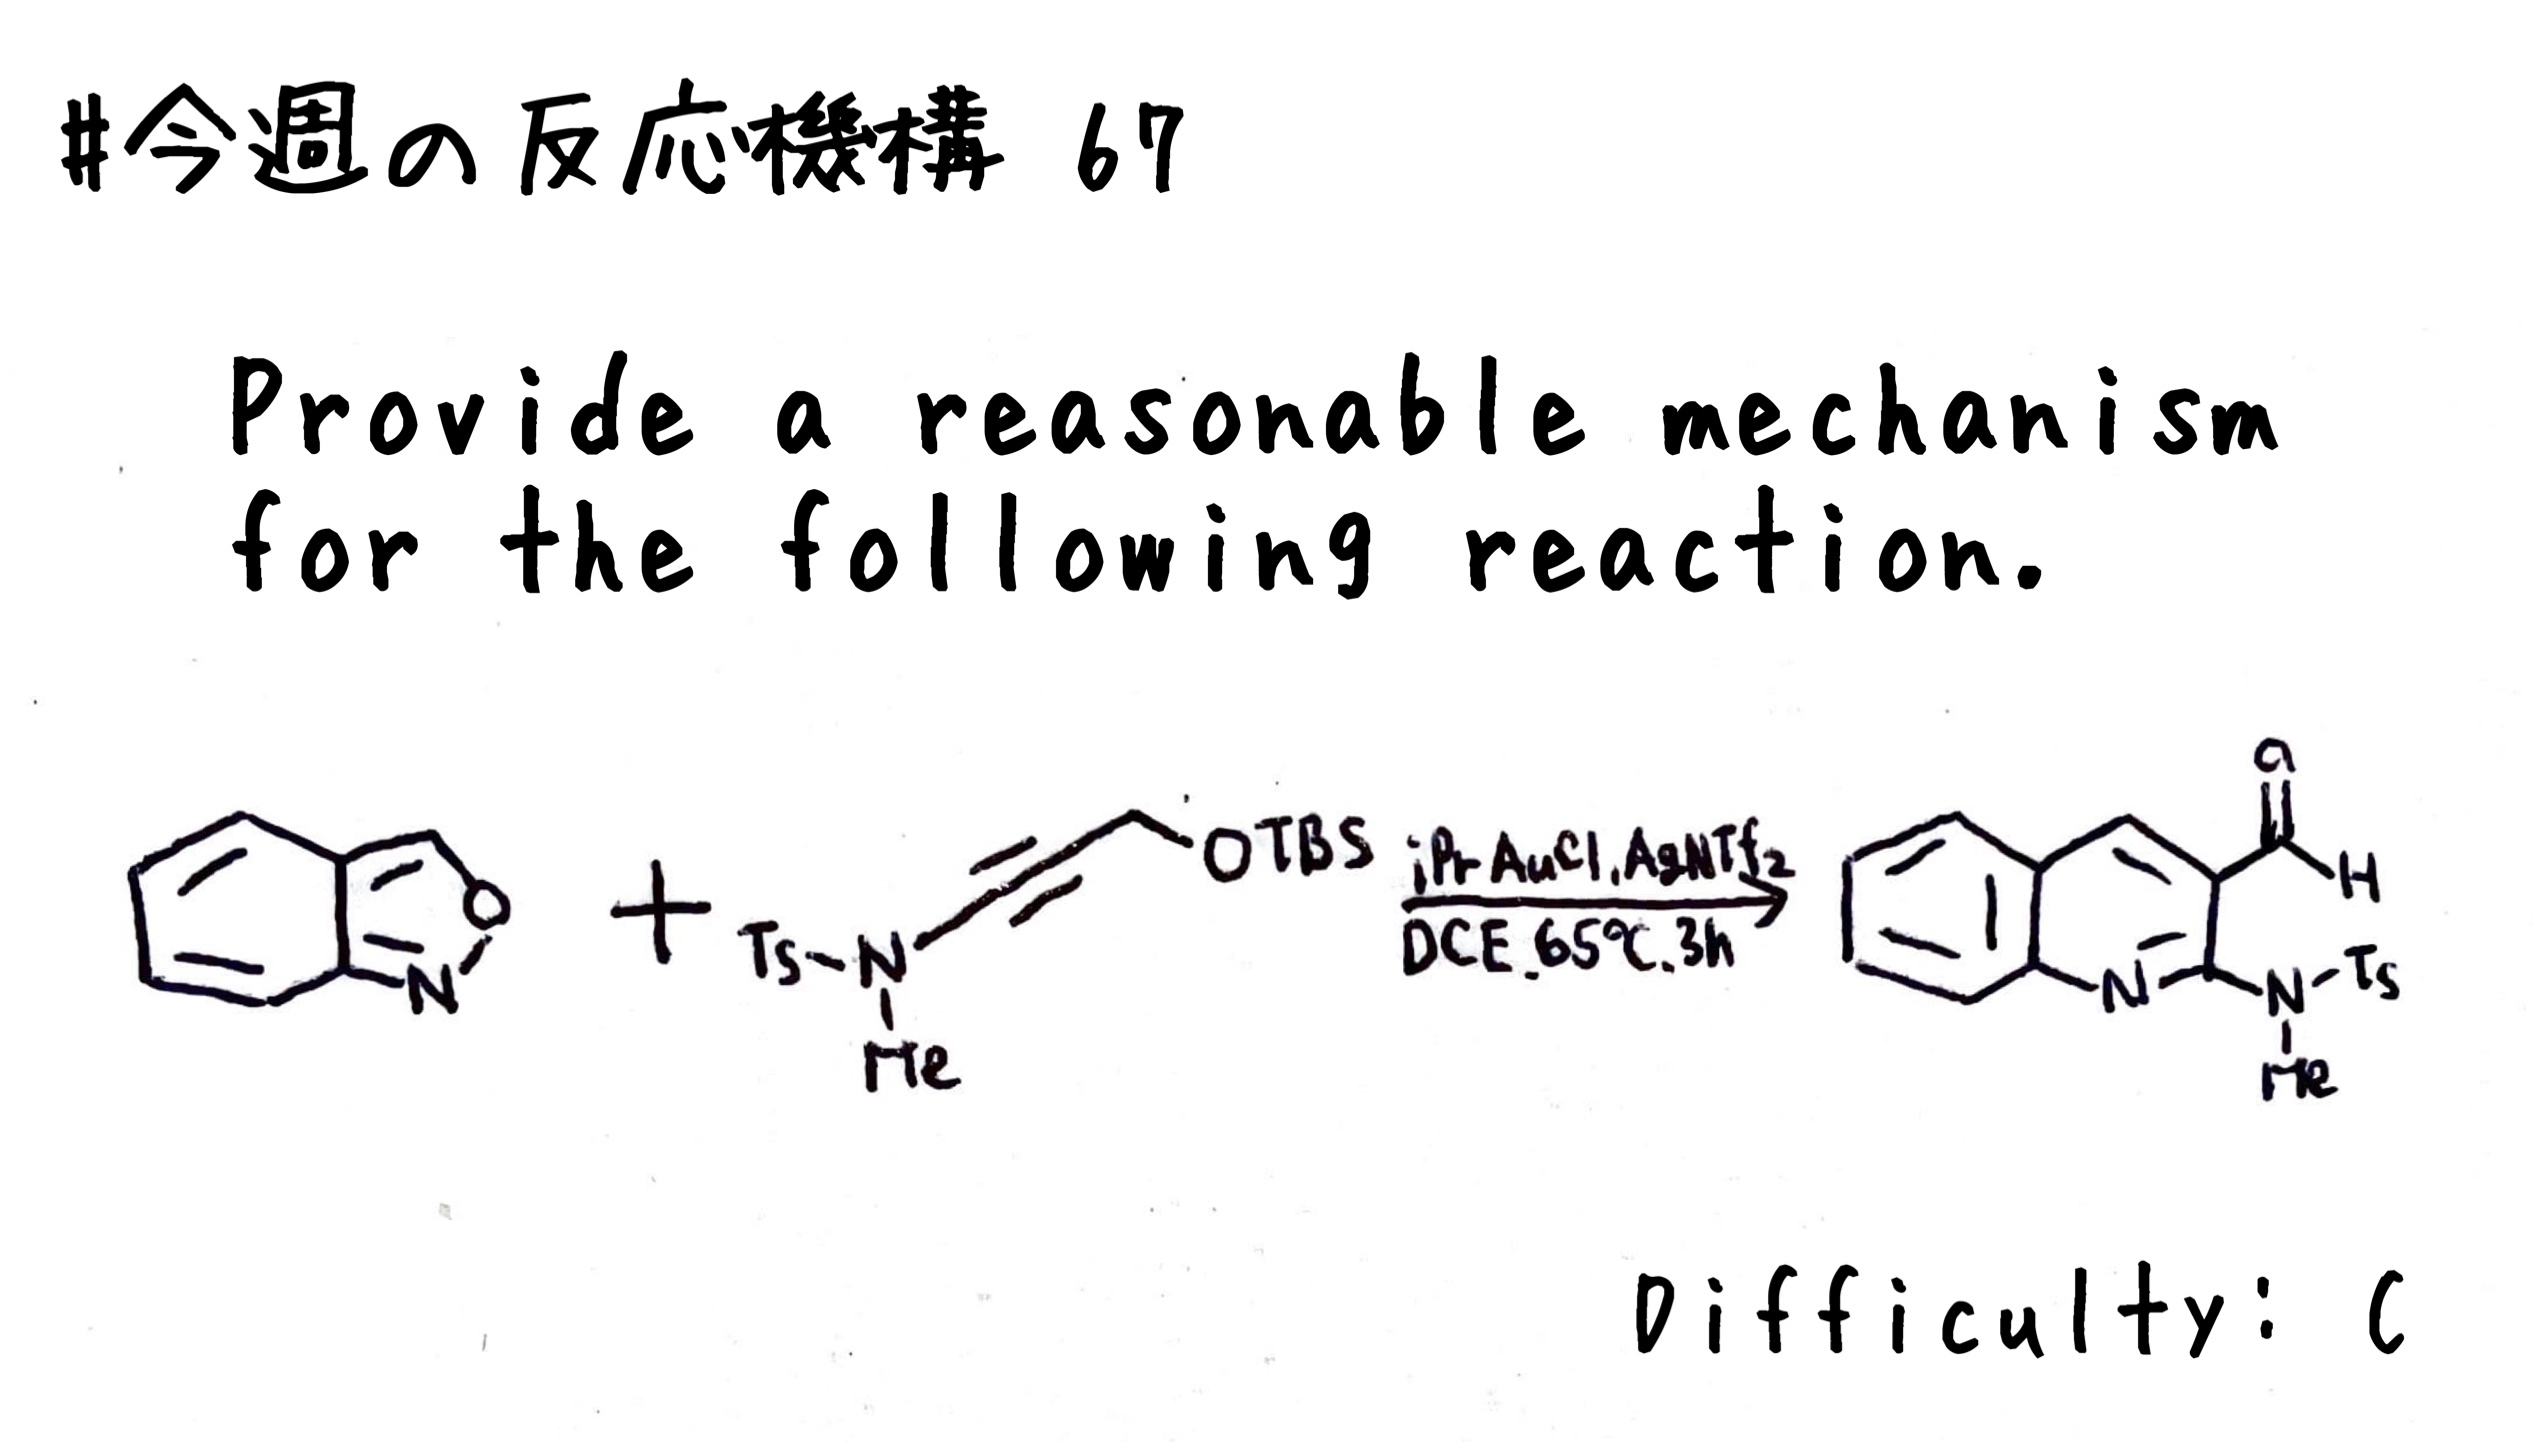 #今週の反応機構 67
Provide a reasonable mechanism
for the following reaction.
O
N
+
Ts-N
Me
OTBS
iPrAuCl, AgNTf2
DCE, 65℃, 3h
O
H
N
N-Ts
Me
Difficulty: C